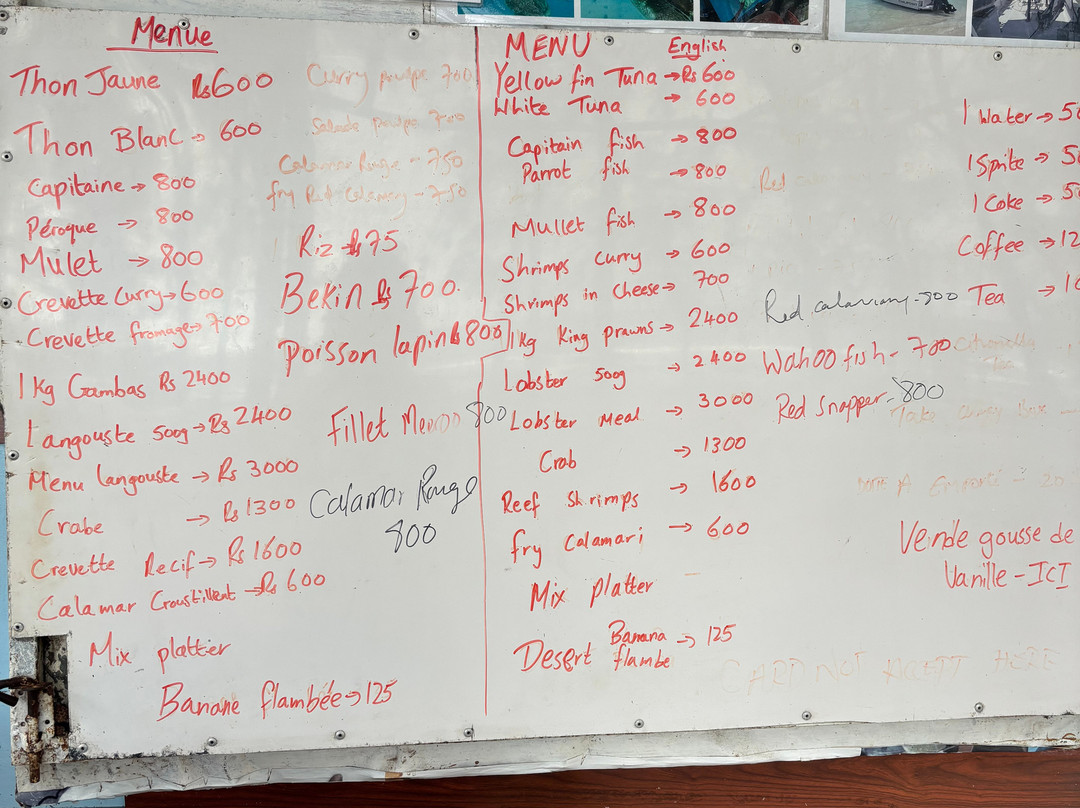 Menue
Thon Jaune Rs600
Thon Blanc → 600
Capitaine → 800
Péroque → 800
Mulet → 800
Crevette Curry → 600
Crevette fromage → 700
1 Kg Gambas Rs 2400
Langouste 500g → Rs 2400
Menu langouste → Rs 3000
Crabe → Rs 1300
Crevette Recif → Rs 1600
Calamar Croustillent → Rs 600
Mix platter
Banane flambée → 125
Curry 700
Salade
Calamar Rouge - 750
fry Red Calamary - 750
Riz Rs 75
Bekin Rs 700.
Poisson lapin Rs 800
Fillet 800
Calamar Rouge
800
MENU English
Yellow fin Tuna → Rs 600
White Tuna → 600
Capitain fish → 800
Parrot fish → 800
Mullet fish → 800
Shrimps curry → 600
Shrimps in Cheese → 700
1 kg King prawns → 2400
Lobster 500g → 2400
Lobster Meal → 3000
Crab → 1300
Reef Shrimps → 1600
fry Calamari → 600
Mix platter
Desert Banana flambe → 125
Red
Red calamary - 800
Wahoo fish - 700
Red Snapper - 800
1 Water → 50
1 Sprite → 50
1 Coke → 5
Coffee → 12
Tea → 1
Vende gousse de
Vanille - ICI
CARD NOT ACCEPT HERE